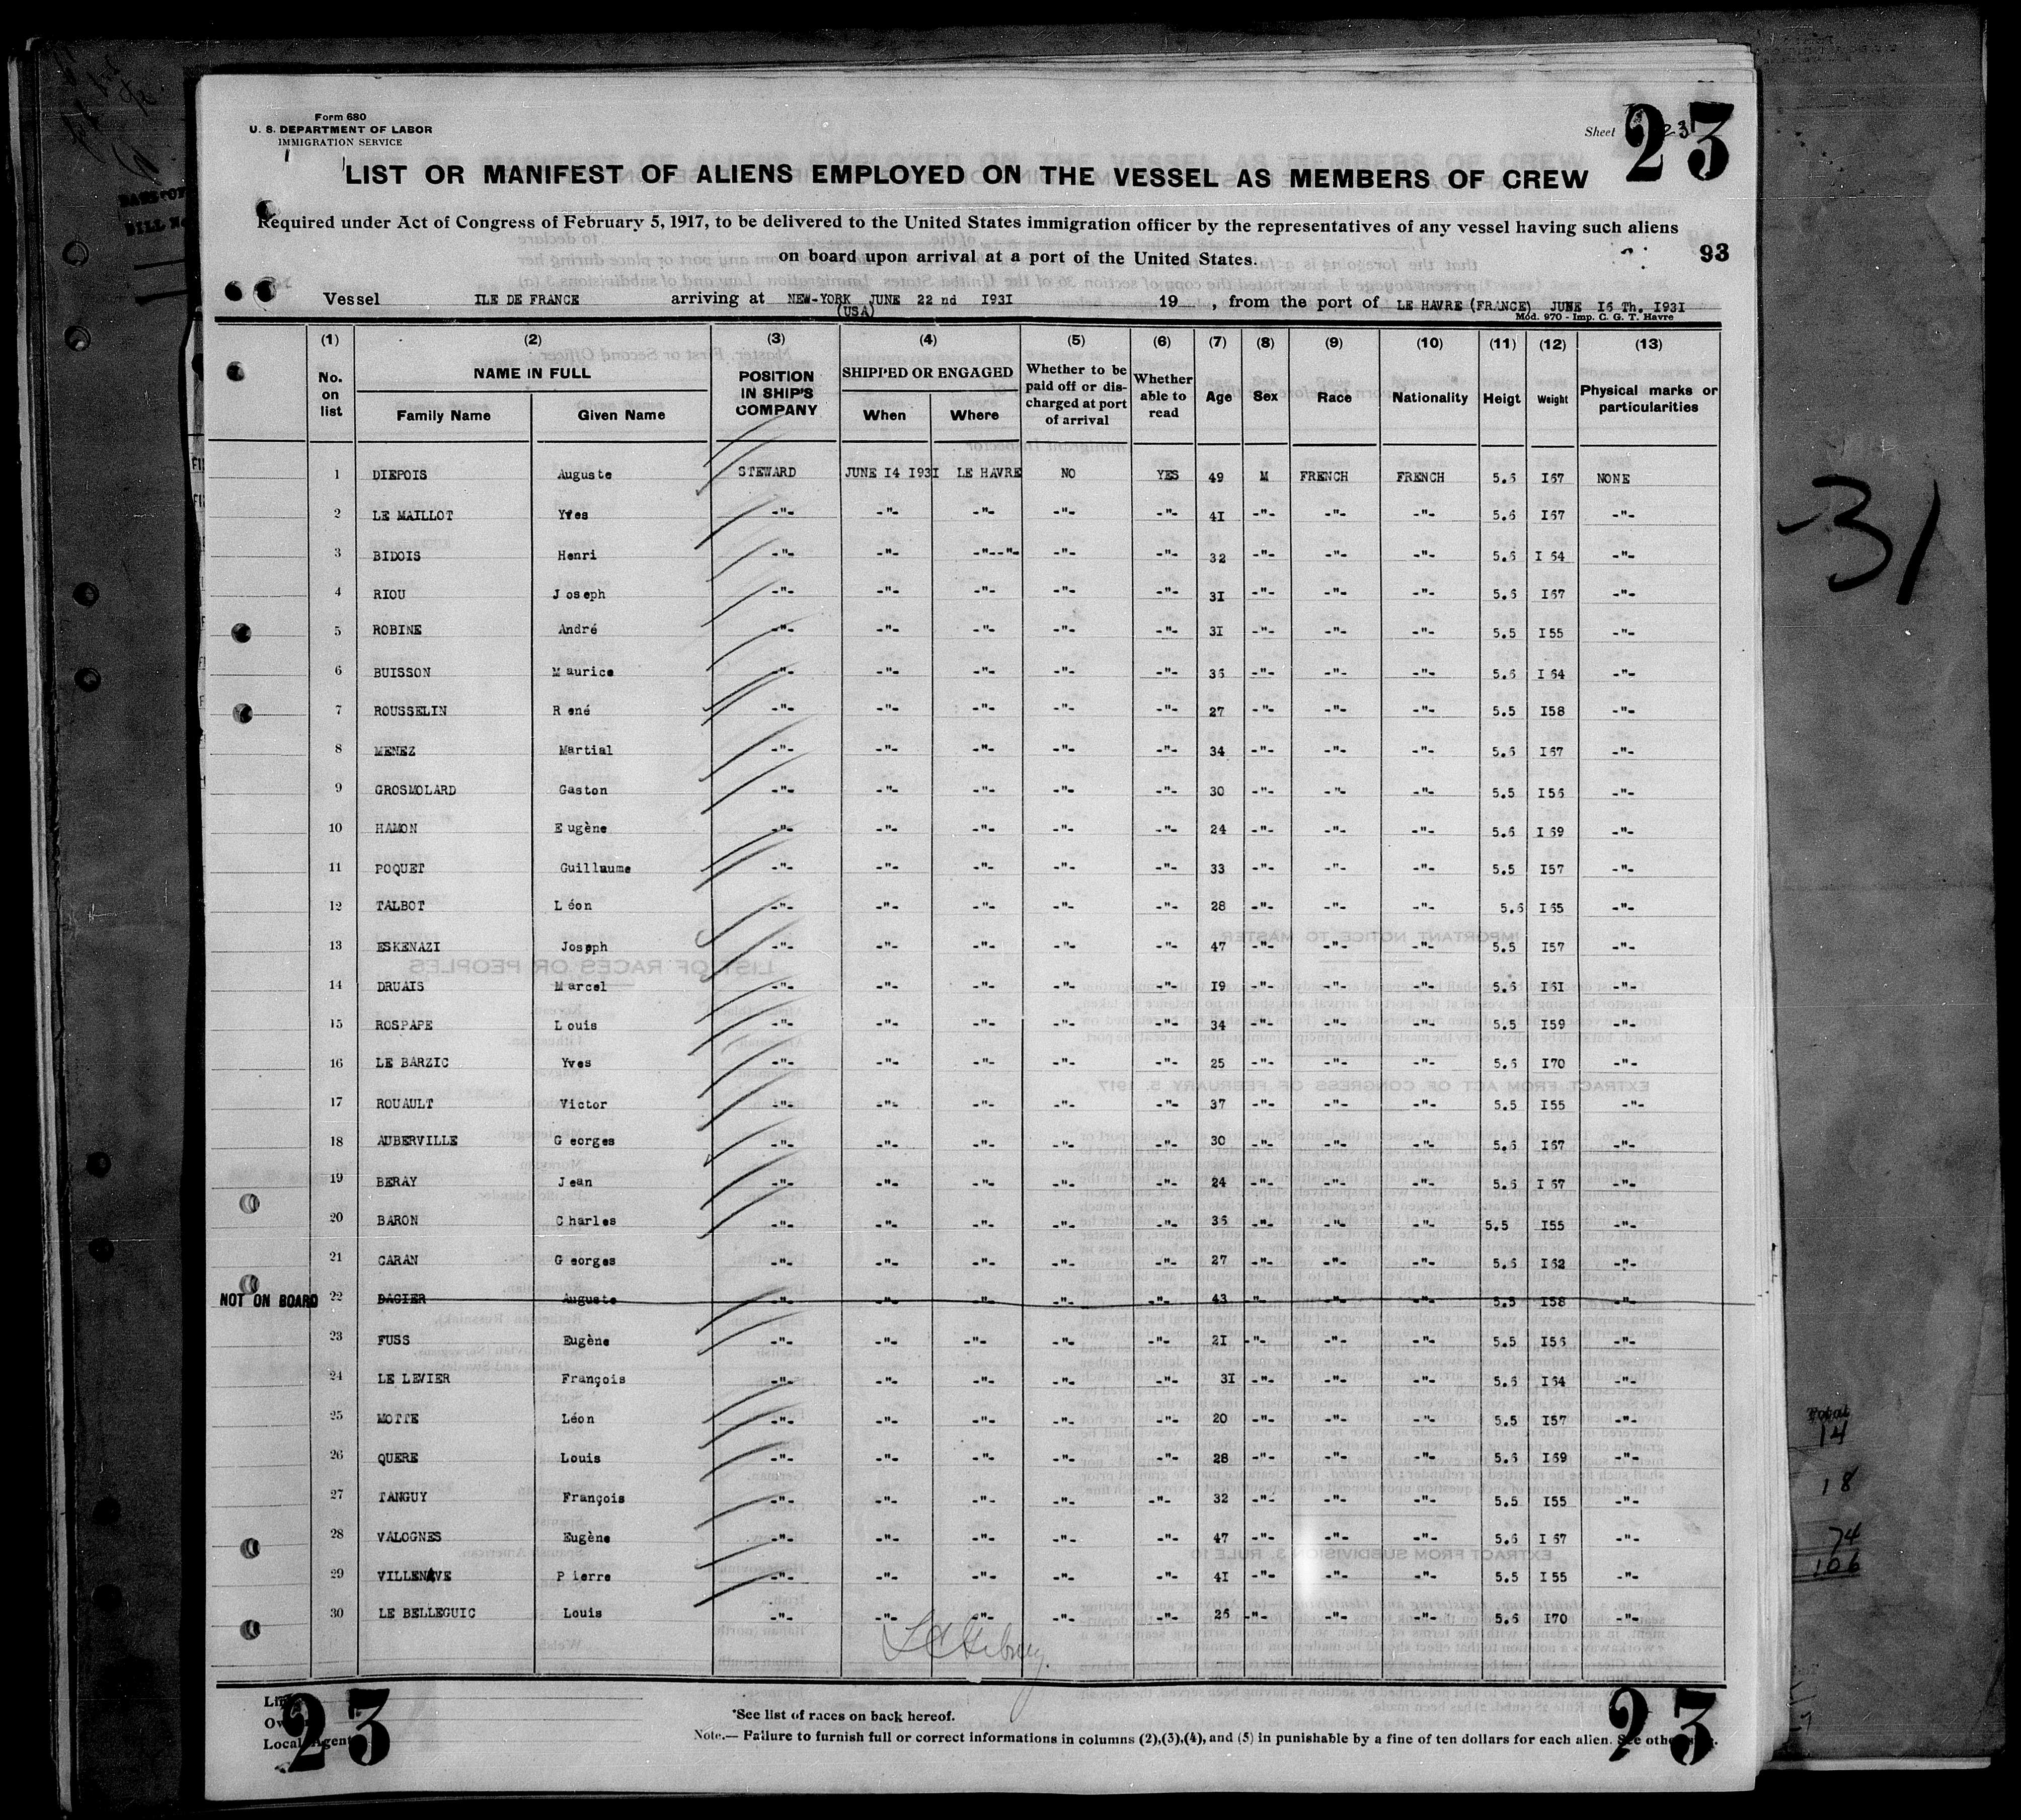 Form 680
U. S. DEPARTMENT OF LABOR
IMMIGRATION SERVICE
Sheet 23
23
LIST OR MANIFEST OF ALIENS EMPLOYED ON THE VESSEL AS MEMBERS OF CREW
Required under Act of Congress of February 5, 1917, to be delivered to the United States immigration officer by the representatives of any vessel having such aliens
on board upon arrival at a port of the United States.
93
Vessel ILE DE FRANCE arriving at NEW-YORK JUNE 22 nd I93I 19 , from the port of LE HAVRE (FRANCE) JUNE I6 Th. I93I
(USA)
Mod. 970 - Imp. C. G. T. Havre
(1) (2) (3) (4) (5) (6) (7) (8) (9) (10) (11) (12) (13)
No. on list NAME IN FULL Family Name Given Name POSITION IN SHIP'S COMPANY SHIPPED OR ENGAGED When Where Whether to be paid off or discharged at port of arrival Whether able to read Age Sex Race Nationality Heigt Weight Physical marks or particularities
1 DIEPOIS Auguste STEWARD JUNE I4 I93I LE HAVRE NO YES 49 M FRENCH FRENCH 5.6 I67 NONE
2 LE MAILLOT Yves -"- -"- -"- -"- -"- 4I -"- -"- -"- 5.6 I67 -"-
3 BIDOIS Henri -"- -"- -"--"- -"- -"- 32 -"- -"- -"- 5.6 I 64 -"-
4 RIOU Joseph -"- -"- -"- -"- -"- 3I -"- -"- -"- 5.6 I67 -"-
5 ROBINE André -"- -"- -"- -"- -"- 3I -"- -"- -"- 5.5 I55 -"-
6 BUISSON Maurice -"- -"- -"- -"- -"- 36 -"- -"- -"- 5.6 I 64 -"-
7 ROUSSELIN René -"- -"- -"- -"- -"- 27 -"- -"- -"- 5.5 I58 -"-
8 MENEZ Martial -"- -"- -"- -"- -"- 34 -"- -"- -"- 5.6 I67 -"-
9 GROSMOLARD Gaston -"- -"- -"- -"- -"- 30 -"- -"- -"- 5.5 I56 -"-
10 HAMON Eugène -"- -"- -"- -"- -"- 24 -"- -"- -"- 5.6 I 69 -"-
11 POQUET Guillaume -"- -"- -"- -"- -"- 33 -"- -"- -"- 5.5 I57 -"-
12 TALBOT Léon -"- -"- -"- -"- -"- 28 -"- -"- -"- 5.6 I65 -"-
13 ESKENAZI Joseph -"- -"- -"- -"- -"- 47 -"- -"- -"- 5.5 I57 -"-
14 DRUAIS Marcel -"- -"- -"- -"- -"- I9 -"- -"- -"- 5.6 I6I -"-
15 ROSPAPE Louis -"- -"- -"- -"- -"- 34 -"- -"- -"- 5.5 I59 -"-
16 LE BARZIC Yves -"- -"- -"- -"- -"- 25 -"- -"- -"- 5.6 I70 -"-
17 ROUAULT Victor -"- -"- -"- -"- -"- 37 -"- -"- -"- 5.5 I55 -"-
18 AUBERVILLE Georges -"- -"- -"- -"- -"- 30 -"- -"- -"- 5.6 I67 -"-
19 BERAY Jean -"- -"- -"- -"- -"- 24 -"- -"- -"- 5.6 I 67 -"-
20 BARON Charles -"- -"- -"- -"- -"- 36 -"- -"- -"- 5.5 I55 -"-
21 CARAN Georges -"- -"- -"- -"- -"- 27 -"- -"- -"- 5.6 I62 -"-
NOT ON BOARD 22 DAGIER Auguste -"- -"- -"- -"- -"- 43 -"- -"- -"- 5.5 I58 -"-
23 FUSS Eugène -"- -"- -"- -"- -"- 2I -"- -"- -"- 5.5 I56 -"-
24 LE LEVIER François -"- -"- -"- -"- -"- 3I -"- -"- -"- 5.6 I64 -"-
25 MOTTE Léon -"- -"- -"- -"- -"- 20 -"- -"- -"- 5.5 I57 -"-
26 QUERE Louis -"- -"- -"- -"- -"- 28 -"- -"- -"- 5.6 I69 -"-
27 TANGUY François -"- -"- -"- -"- -"- 32 -"- -"- -"- 5.5 I55 -"-
28 VALOGNES Eugène -"- -"- -"- -"- -"- 47 -"- -"- -"- 5.6 I 67 -"-
29 VILLENAVE Pierre -"- -"- -"- -"- -"- 4I -"- -"- -"- 5.5 I55 -"-
30 LE BELLEGUIC Louis -"- -"- -"- -"- -"- 26 -"- -"- -"- 5.6 I70 -"-
31
Total
14
18
74
106
Local Agent
23
*See list of races on back hereof.
Note.— Failure to furnish full or correct informations in columns (2),(3),(4), and (5) in punishable by a fine of ten dollars for each alien. See other
23